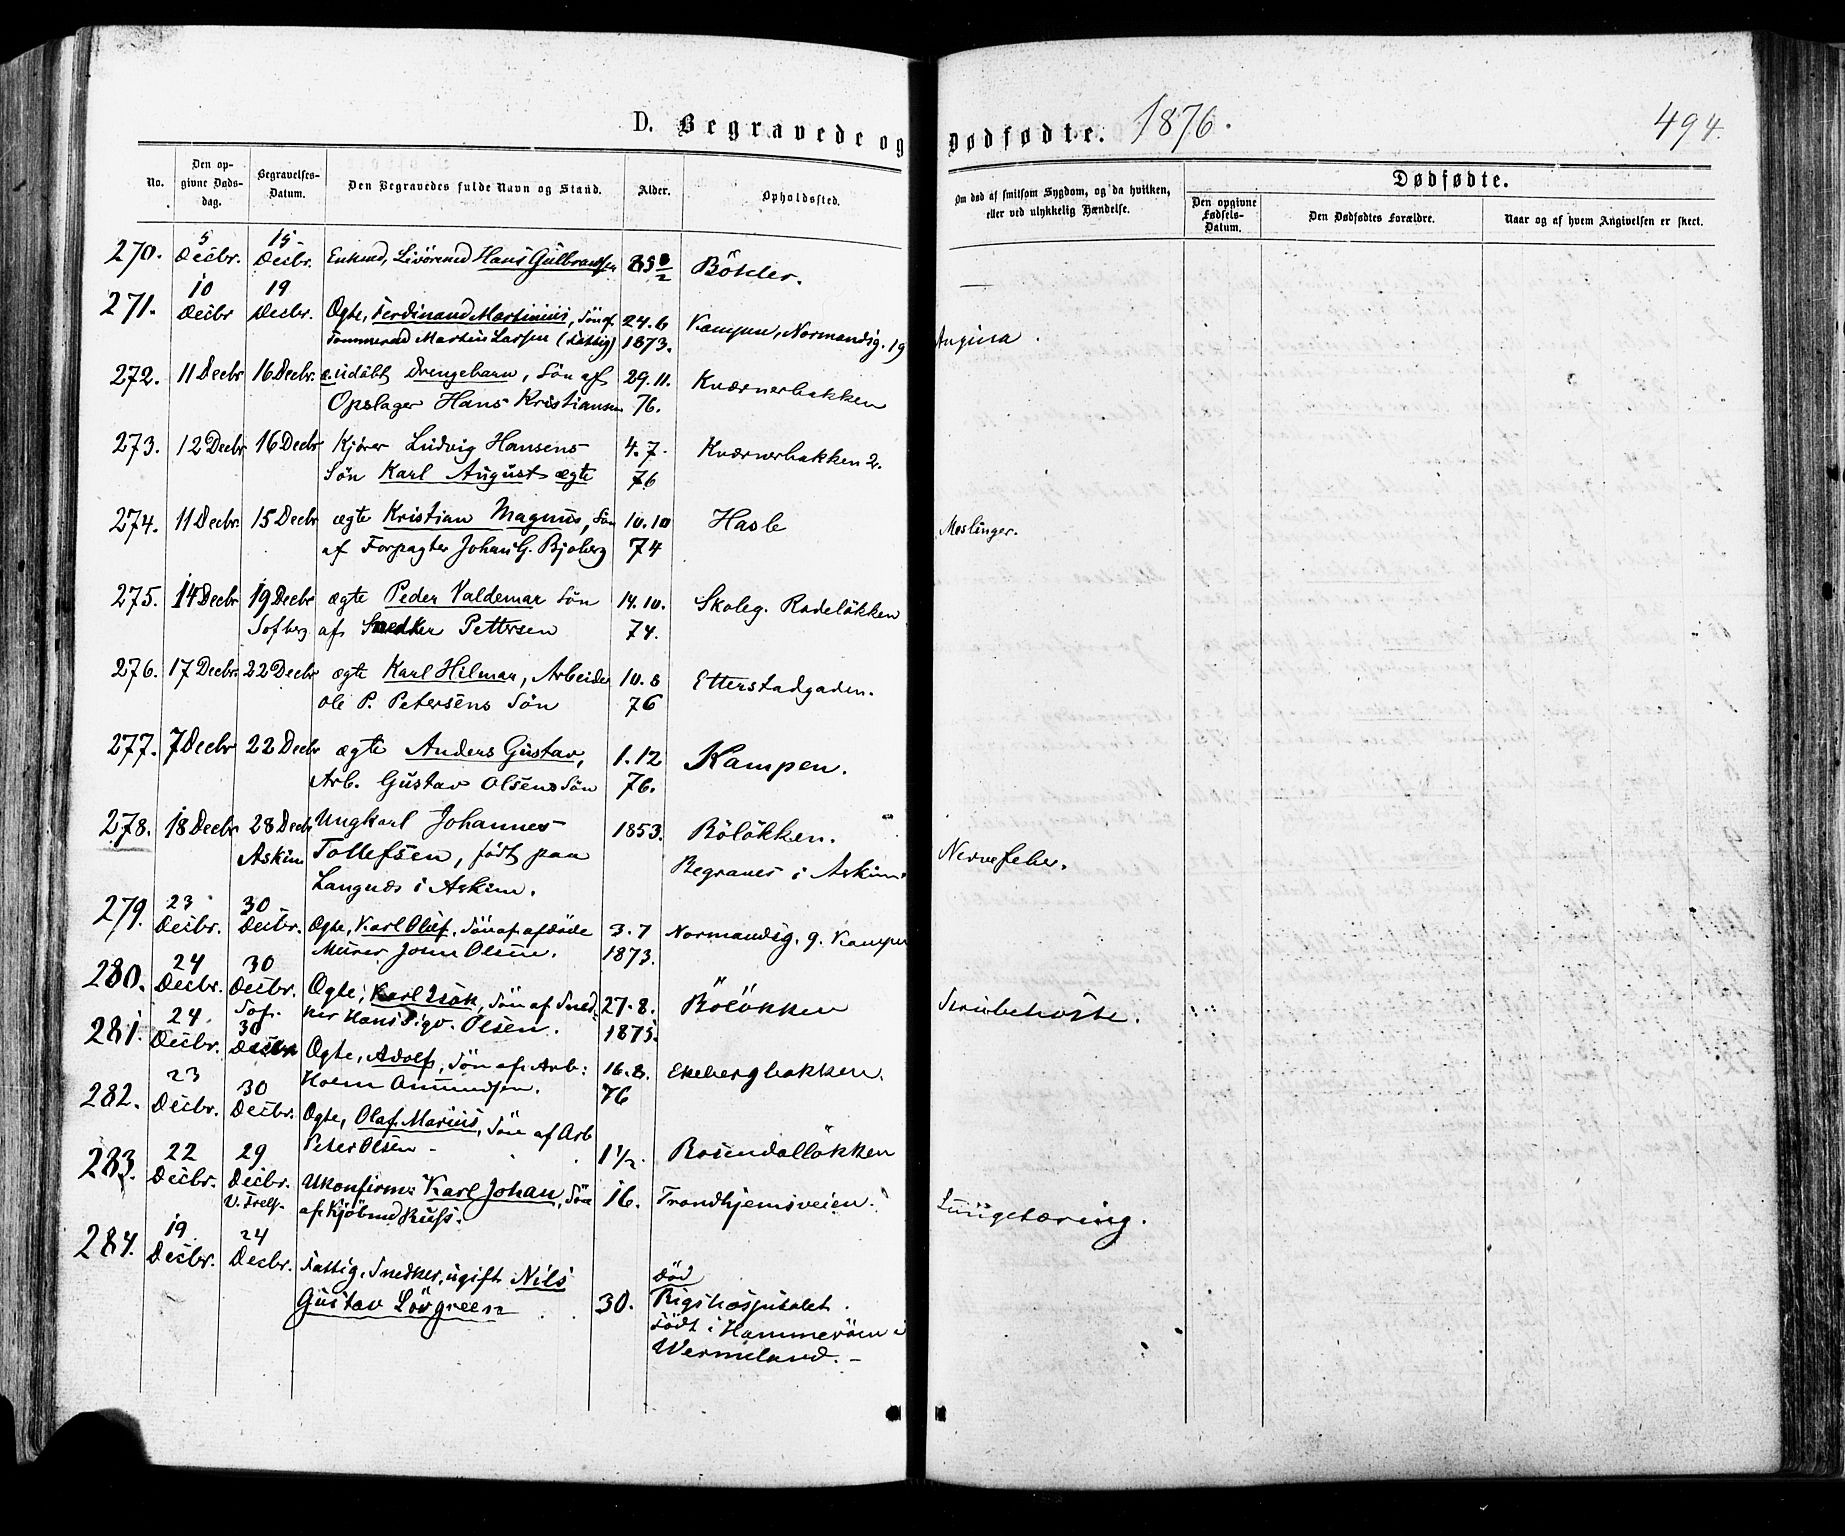 D. Begravede og Dødfødte. 1876. 494.
No.
Den opgivne Dødsdag.
Begravelses-Datum.
Den Begravedes fulde Navn og Stand.
Alder.
Opholdssted.
Om død af smitsom Sygdom, og da hvilken,
eller ved ulykkelig Hændelse.
Dødfødte.
Den opgivne Fødsels-Datum.
Den Dødfødtes Forældre.
Naar og af hvem Angivelsen er skeet.
270. 5 Decbr. 15 Decbr. Enkmd, Hans Gulbrandsen Böhler.
271. 10 Decbr 19 Decbr. Ægte, Ferdinand Martinius, Sön af 24.6 Kampen, Normandsg. 19 Angina.
Tømmermd Martin Larsen (fattig) 1873.
272. 11 Decbr 16 Decbr. æ. udöbt Drengebarn, Sön af 29.11. Kværnerbakken
Opslager Hans Kristiansen 76.
273. 12 Decbr 16 Decbr Kjører Ludvig Hansens 4.7. Kværnerbakken 2.
Sön Karl August ægte 76
274. 11 Decbr. 15 Decbr ægte Kristian Magnus, Sön 10.10 Hasle Meslinger.
af Forpagter Johan G. Bjoberg 74
275. 14 Decbr 19 Decbr ægte Peder Valdemar Sön 14.10. Skoleg. Rodeløkken
Sofberg af Snedker Pettersen 74.
276. 17 Decbr. 22 Decbr ægte Karl Hilmar, Arbeider 10.8 Etterstadgaden.
Ole P. Petersens Sön 76
277. 7 Decbr 22 Decbr ægte Anders Gustav, 1.12 Kampen.
Arb. Gustav Olsens Sön 76.
278. 18 Decbr 28 Decbr Ungkarl Johannes 1853. Bölökken.
Askim Tollefsen, født paa Begraves i Askim. Nervefeber.
Langnæs i Askim.
279. 23 Decbr. 30 Decbr. Ægte, Karl Oluf, Sön af afdöde 3.7 Normandsg. 9. Kampen
Murer John Olsen. 1873.
280. 24 Decbr. 30 Decbr. Ægte, Karl Isak, Sön af Sned- 27.8. Bölökken Strubehoste.
Sof. ker Hans Olsen. 1875.
281. 24 Decbr. 30 Decbr Ægte, Adolf, Sön af Arb: 16.8. Ekebergbakken.
Amundsen. 76
282. 23 Decbr. 30 Decbr. Ægte, Olaf Marius, Sön af Arb
Peter Olsen 1 1/2. Rosendalløkken
283. 22 Decbr. 29 Decbr. Ukonfirm: Karl Johan, Sön 16. Trondhjemsveien. Lungetæring.
V. Frels. af Kjöbmd Russ.
284. 19 Decbr. 24 Decbr. Fattig, Snedker, ugift Nils død
Gustav Lövgreen 30. Rigshospitalet.
Födt i Hammeröen i
Wermeland.